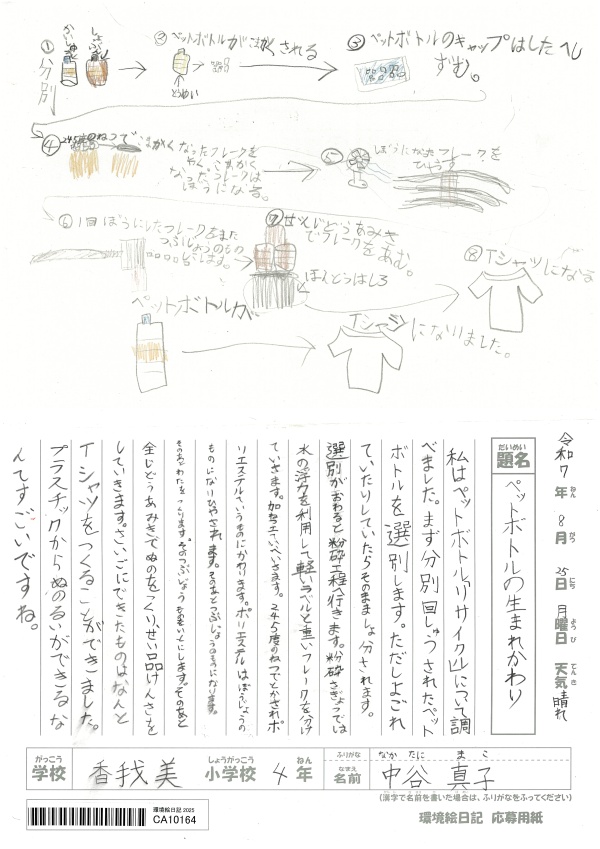 ① 分別
かいしゅう
しょぶん
② ペットボトルがこまかくされる
とうめい
③ ペットボトルのキャップはしたへし
ずむ。
④ 245度のねつで
こまかくなったフレークを
やく こまかく
なったフレークは
ぼうになる。
⑤ ぼうにかわったフレークを
ひやす
⑥ 1回ぼうにしたフレークをまた
つぶしょうのもの
にします。
⑦ せんじどうあみき
でフレークをあむ。
ほんとうはしろ
⑧ Tシャツになる
ペットボトルが
Tシャツになりました。
令和7年 8月 25日 月曜日 天気 晴れ
ねん がつ にち ようび てんき
だいめい
題名 ペットボトルの生まれかわり
私はペットボトルリサイクルについて調
べました。まず分別回しゅうされたペット
ボトルを選別します。ただしよごれ
ていたりしていたらそのまましょ分されます。
選別がおわると粉砕工程へ行きます。粉砕さぎょうでは
水の浮力を利用して軽いラベルと重いフレークを分け
ていきます。加ねつしていきます。245度のねつでとかされポ
リエステルというものにかわります。ポリエステルはぼうじょうの
ものになりひやされます。そのあとつぶじょうのようになります。
そのあとわたをつくります。そのつぶじょうを長いいとにします。そのあと
全じどうあみきでぬのをつくり、せい品けんさを
していきます。さいごにできたものはなんと
Tシャツをつくることができました。
プラスチックからぬのるいができるな
んてすごいですね。
がっこう
学校 香我美
しょうがっこう
小学校 4 年
ねん
ふりがな なか たに ま こ
なまえ
名前 中谷 真子
(漢字で名前を書いた場合は、ふりがなをふってください)
環境絵日記 2025
CA10164
環境絵日記 応募用紙